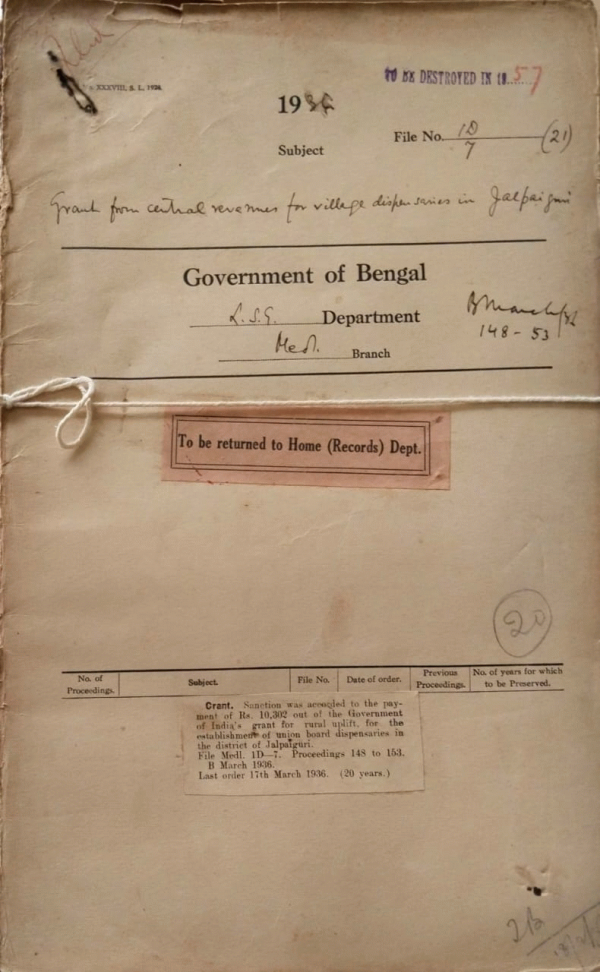 XXXVIII, S. L., 1934.
TO BE DESTROYED IN 19.....57
1936
File No. 1D/7 (21)
Subject
Grant from central revenues for village dispensaries in Jalpaiguri
Government of Bengal
L.S.G. Department
B March/36
148-53
Medl. Branch
To be returned to Home (Records) Dept.
20
No. of Proceedings. Subject. File No. Date of order. Previous Proceedings. No. of years for which to be Preserved.
Grant. Sanction was accorded to the pay-
ment of Rs. 10,302 out of the Government
of India's grant for rural uplift, for the
establishment of union board dispensaries in
the district of Jalpaiguri.
File Medl. 1D—7. Proceedings 148 to 153.
B March 1936.
Last order 17th March 1936. (20 years.)